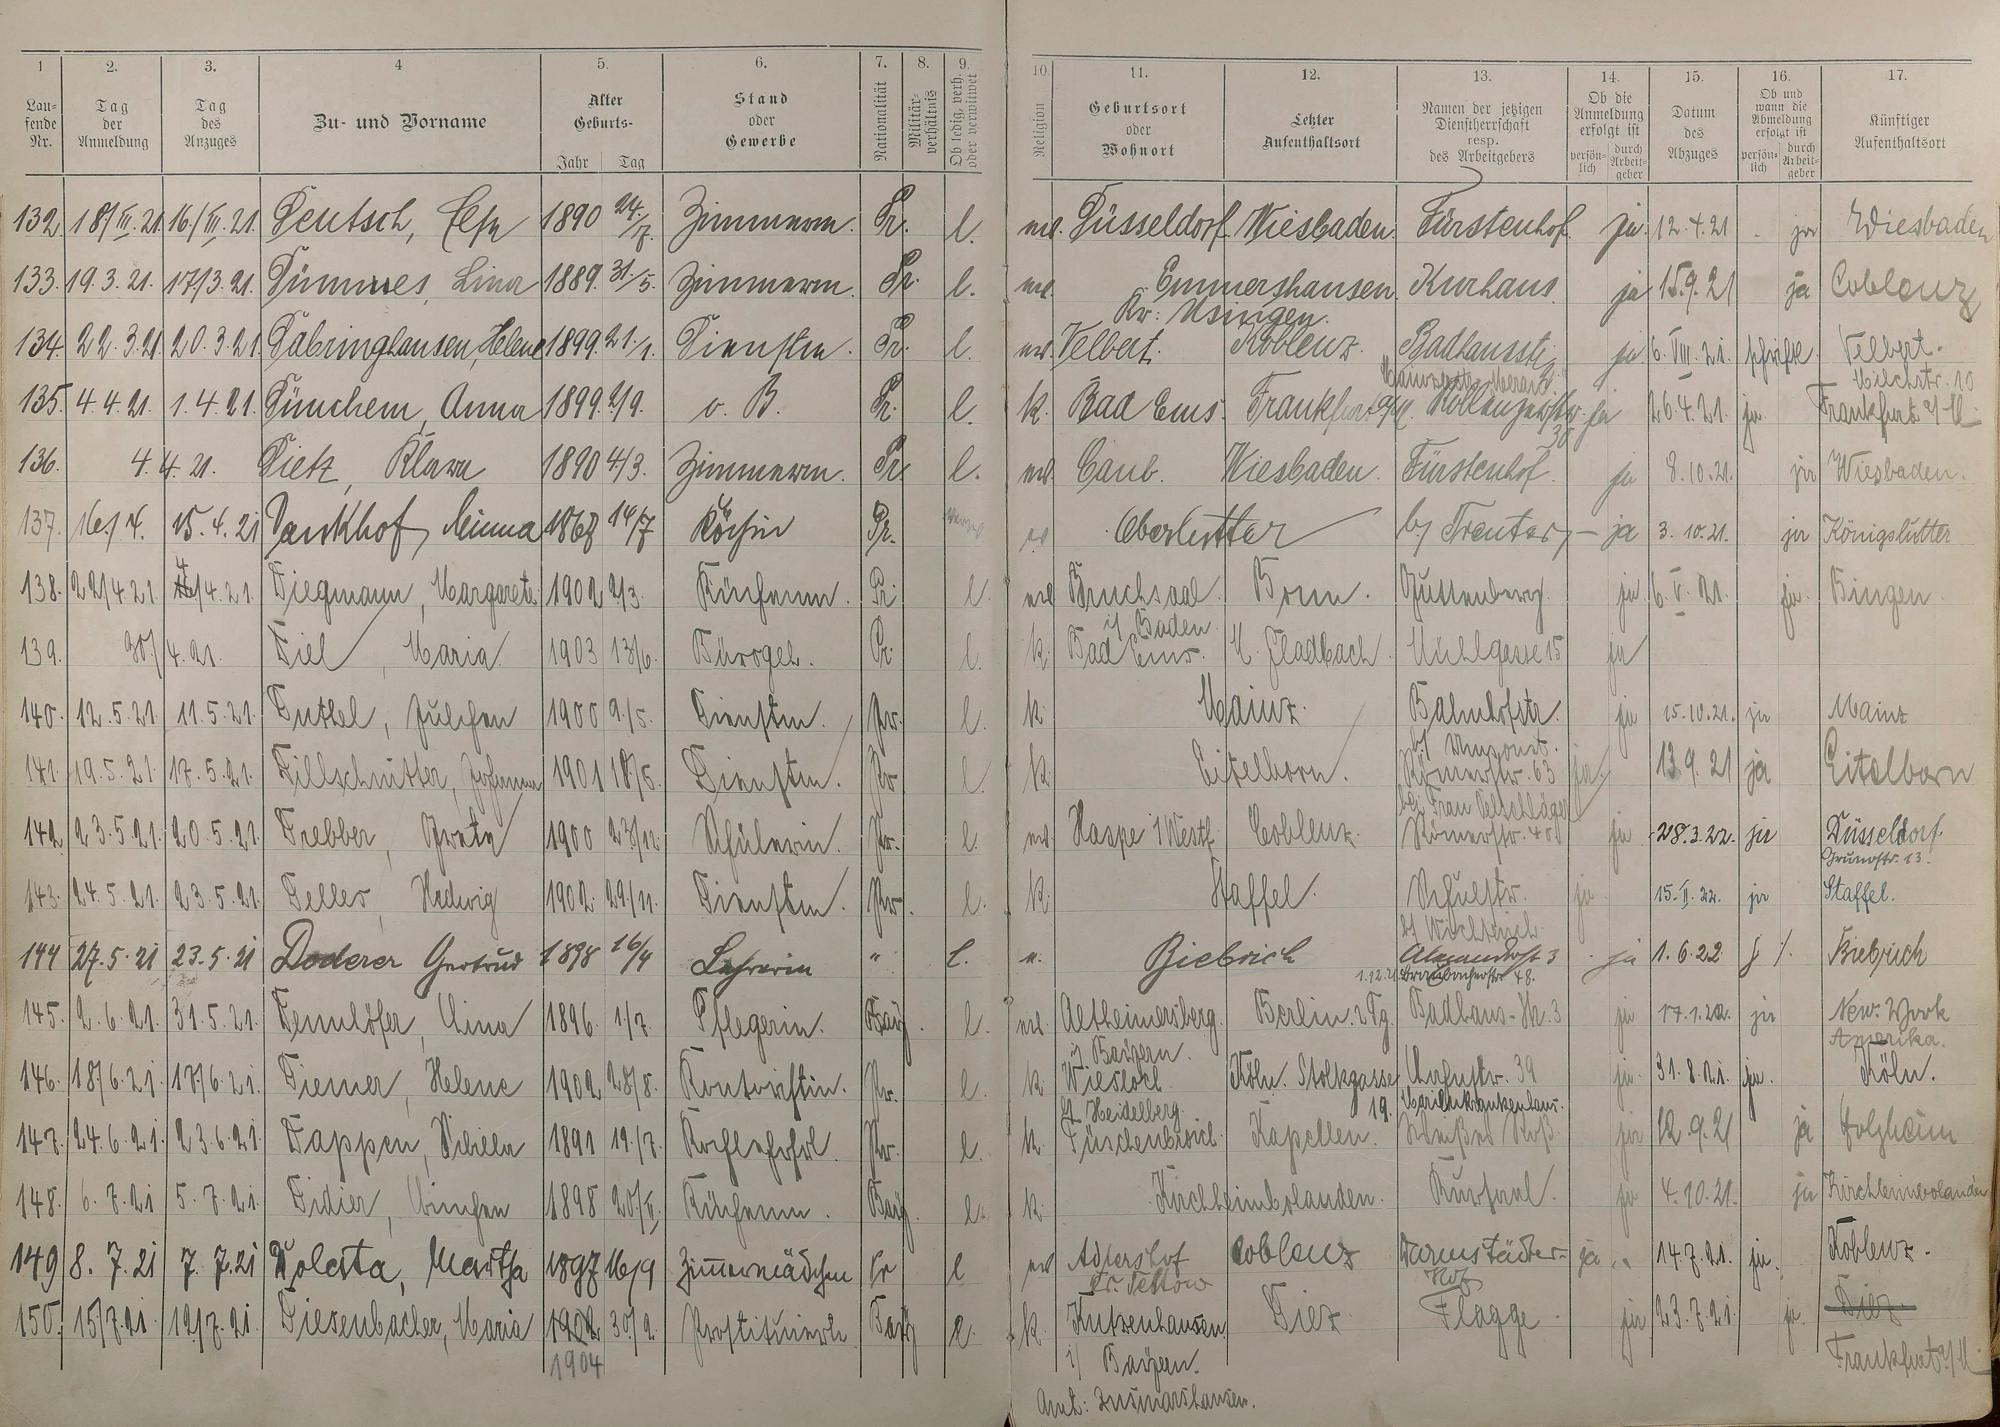 1 2. 3. 4 5. 6. 7. 8. 9. 10. 11. 12. 13. 14. 15. 16. 17.
Lau-
fende
Nr.
Tag
der
Anmeldung
Tag
des
Anzuges
Zu- und Vorname
Alter
Geburts-
Jahr Tag
Stand
oder
Gewerbe
Nationalität
Militär-
verhältnis
Ob ledig, verh.
oder verwitwet
Religion
Geburtsort
oder
Wohnort
Letzter
Aufenthaltsort
Namen der jetzigen
Dienstherrschaft
resp.
des Arbeitgebers
Ob die
Anmeldung
erfolgt ist
persön-
lich
durch
Arbeit-
geber
Datum
des
Abzuges
Ob und
wann die
Abmeldung
erfolgt ist
persön-
lich
durch
Arbeit-
geber
Künftiger
Aufenthaltsort
132. 18/III. 21. 16./III. 21. Deutsch, 1890 24./7. Zimmerm. Pr. l. evl. Düsseldorf. Wiesbaden. Fürstenhof. ja. 12.4.21 ja Wiesbaden
133. 19.3.21. 17/3.21. Dümmes, Lina 1889. 31./5. Zimmerm. Pr. l. evl. Emmershausen Kurhaus. ja 15.9.21 ja Coblenz
Kr: Usingen.
134. 22.3.21. 20.3.21. Dabringhausen, Helene 1899. 21./1. Dienstm. Pr. l. evl. Velbert. Koblenz. Badhausstr. ja 6.VIII.21. schriftl. Velbert.
Milchstr. 10
135. 4.4.21. 1.4.21. Dünchem, Anna 1899. 2/9. o. B. Pr. l. k. Bad Ems. Frankfurt a/M. Koblenzerstr. ja 26.4.21. ja. Frankfurt a/M.
30
136. 4.4.21. Dietz, Klara 1890 4/3. Zimmerm. Pr. l. evl. Caub. Wiesbaden. Fürstenhof. ja 8.10.21. ja Wiesbaden.
137. 16/4. 15.4.21 Dankhof, Minna 1868 14/7 Köchin Pr. Oberlutter b/ Treuter, – ja 3.10.21. ja Königslutter
138. 22/4.21. /4.21. Diegmann, Margarete 1902 2/3. Küchenm. Pr. l. evl Bruchsaal. Bonn. Guttenberg. ja. 6.V.21. ja. Bingen.
i/ Baden.
139. 30./4.21. Diel, Maria 1903 13/6. Bürogeh. Pr. l. k. Bad Ems. M. Gladbach. Mühlgasse 15 ja
140. 12.5.21. 11.5.21. Duttel, Julchen 1900 9./5. Dienstm. Pr. l. k. Mainz. Bahnhofstr. ja 15.10.21. ja Mainz
141. 19.5.21 17.5.21. Dillschnitter, Johanna 1901 18/5. Dienstm. Pr l. k. Eitelborn. Römerstr. 63 ja. 13.9.21 ja Eitelborn
bei Frau
142. 23.5.21. 20.5.21. Drebber, Greta 1900 23/12. Schülerin. Pr. l. evl. Haspe i/Westf. Coblenz. Römerstr. 40 ja 28.3.22. ja Düsseldorf.
Grunerstr. 13.
143. 24.5.21. 23.5.21. Deller, Hedwig 1902. 29/11. Dienstm. Pr. l. k. Staffel. Schulstr. ja. 15.II.22. ja Staffel.
144 27.5.21 23.5.21 Doderer Gertrud 1898 16/4 Lehrerin " l. e. Biebrich Alexanderstr. 3 ja 1.6.22. Biebrich
1.12.21. Braubacherstr. 48.
145. 2.6.21. 31.5.21. Dennlöfer, Lina 1896. 1/7. Pflegerin. Bay. l. evl. Aetheimersberg. Berlin. 2 Tg. Badhaus-Str. 3 ja 17.1.22. ja New-York
i/ Bayern. Amerika.
146. 18/6.21. 17/6.21. Diemer, Helene 1902 28/8. Kontoristin. Pr. l. k. Wiesloch. Köln. Stolkgasse 39 ja. 31.8.21. ja. Köln.
b/ Heidelberg. 19. Marienkrankenhaus.
147. 24.6.21. 23.6.21. Dappen, Sibilla 1891 19/7. Pr. l. k. Kapellen. Weißes Roß. ja 12.9.21 ja Holzheim
148. 6.7.21 5.7.21. Didier, Minchen 1898 20/II. Küchenm. Bay. l. k. Kirchheimbolanden. Kursaal. ja 4.10.21. ja Kirchheimbolanden
149 8.7.21 7.7.21 Dolesta, Martha 1897 16/9 Zimmermädchen Pr l evl Adlershof Coblenz Darmstädter- ja 14.7.21. ja. Koblenz.
Kr. Teltow Hof
150. 15/7.21. 12/7.21. Diesenbacher, Maria 1902 30/2. Prostituierte Bay l. k. Kutzenhausen Diez. Flagge. ja 23.7.21. ja. Diez
1904 i/ Bayern. Frankfurt a/M.
Amt: Zusmarshausen.